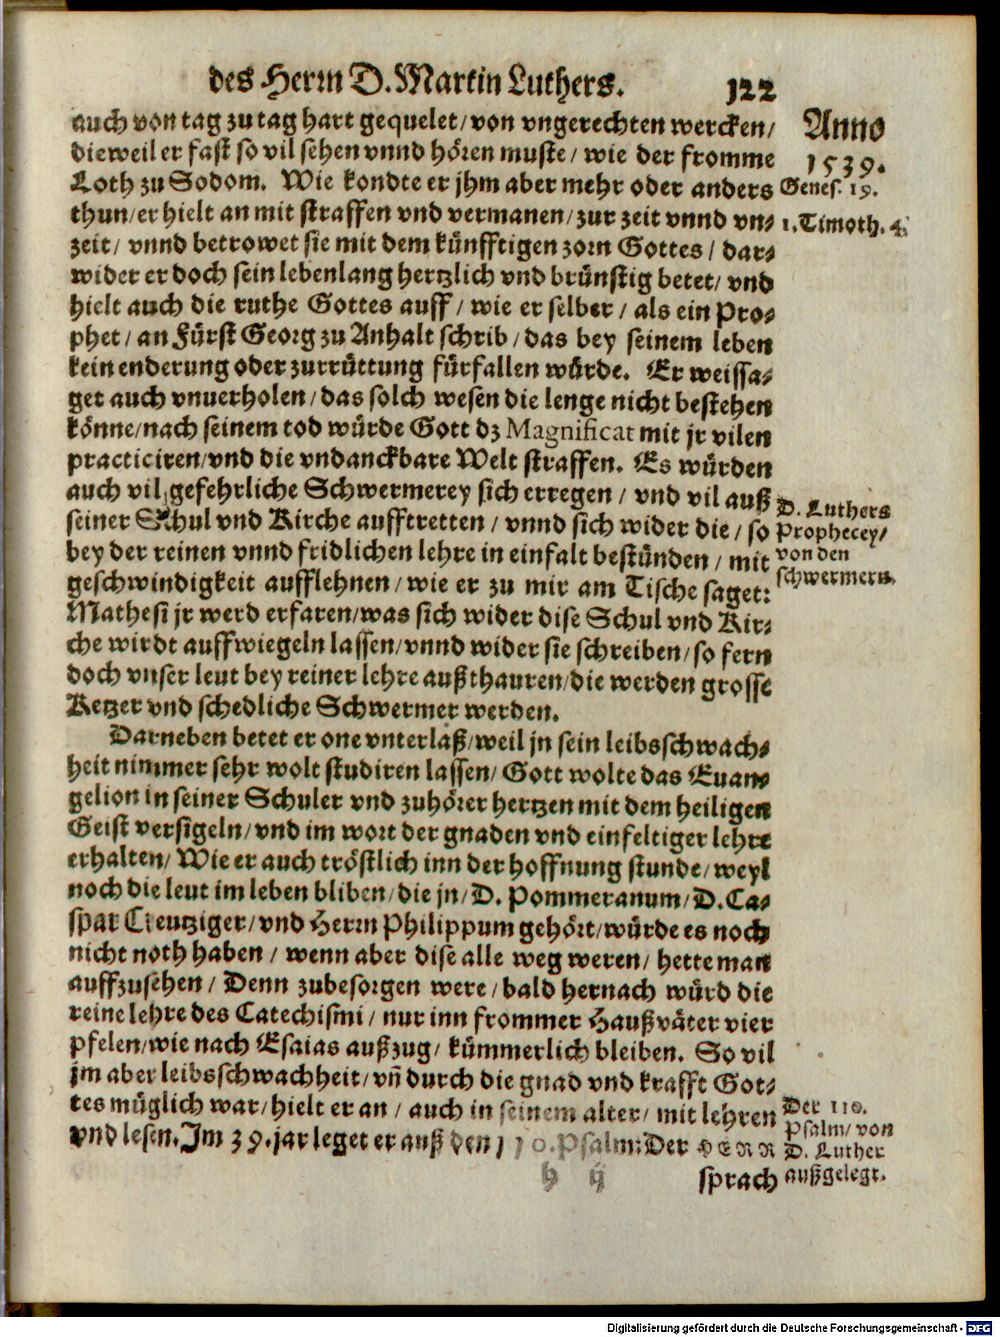 des Herrn D. Martin Luthers. 122
auch von tag zu tag hart gequelet/ von vngerechten wercken/
dieweil er fast so vil sehen vnnd hören muste/ wie der fromme
Loth zu Sodom. Wie kondte er jhm aber mehr oder anders
thun/ er hielt an mit straffen vnd vermanen/ zur zeit vnnd vn-
zeit/ vnnd betrowet sie mit dem künfftigen zorn Gottes/ dar-
wider er doch sein lebenlang hertzlich vnd brünstig betet/ vnd
hielt auch die ruthe Gottes auff/ wie er selber/ als ein Pro-
phet/ an Fürst Georg zu Anhalt schrib/ das bey seinem leben
kein enderung oder zurrüttung fürfallen würde. Er weissa-
get auch vnuerholen/ das solch wesen die lenge nicht bestehen
könne/ nach seinem tod würde Gott dz Magnificat mit jr vilen
practiciren/ vnd die vndanckbare Welt straffen. Es würden
auch vil gefehrliche Schwermerey sich erregen/ vnd vil auß
seiner Schul vnd Kirche aufftretten/ vnnd sich wider die/ so
bey der reinen vnnd fridlichen lehre in einfalt bestünden/ mit
geschwindigkeit aufflehnen/ wie er zu mir am Tische saget:
Mathesi jr werd erfaren/ was sich wider dise Schul vnd Kir-
che wirdt auffwiegeln lassen/ vnnd wider sie schreiben/ so fern
doch vnser leut bey reiner lehre außthauren/ die werden grosse
Ketzer vnd schedliche Schwermer werden.
Darneben betet er one vnterlaß/ weil jn sein leibsschwach-
heit nimmer sehr wolt studiren lassen/ Gott wolte das Euan-
gelion in seiner Schuler vnd zuhörer hertzen mit dem heiligen
Geist versigeln/ vnd im wort der gnaden vnd einfeltiger lehre
erhalten/ Wie er auch tröstlich inn der hoffnung stunde/ weyl
noch die leut im leben bliben/ die jn/ D. Pommeranum/ D. Ca-
spar Creutziger/ vnd Herrn Philippum gehört/ würde es noch
nicht noth haben/ wenn aber dise alle weg weren/ hette man
auffzusehen/ Denn zubesorgen were/ bald hernach würd die
reine lehre des Catechismi/ nur inn frommer Haußväter vier
pfelen/ wie nach Esaias außzug/ kümmerlich bleiben. So vil
jm aber leibsschwachheit/ vn̄ durch die gnad vnd krafft Got-
tes müglich war/ hielt er an/ auch in seinem alter/ mit lehren
vnd lesen. Im 39. jar leget er auß den 110. Psalm: Der HERR
h ij
sprach
Anno
1539.
Genes. 19.
1. Timoth. 4.
D. Luthers
Prophecey/
von den
schwermern.
Der 110.
Psalm/ von
D. Luther
außgelegt.
Digitalisierung gefördert durch die Deutsche Forschungsgemeinschaft - DFG